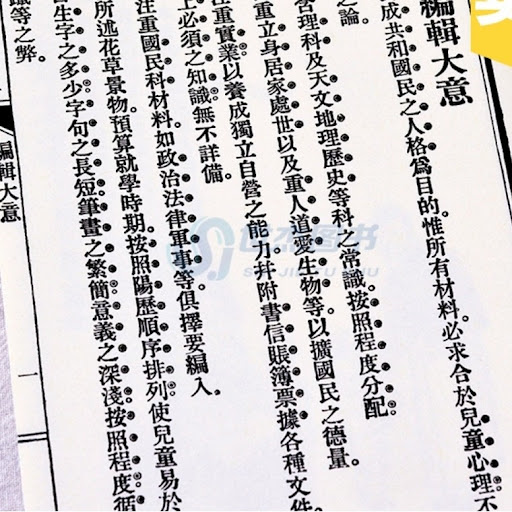 編輯大意
成共和國民之人格爲目的。惟所有材料。必求合於兒童心理。不
之論。
理科及天文地理歷史等科之常識。按照程度分配。
重立身居家處世以及重人道愛生物等。以擴國民之德量。
注重實業。以養成獨立自營之能力。幷附書信賬簿票據各種文件。
上必須之知識。無不詳備。
注重國民科材料。如政治法律軍事等。俱擇要編入。
所述花草景物。預算就學時期。按照陽歷順序排列。使兒童易於
生字之多少。字句之長短。筆畫之繁簡。意義之深淺。按照程度。循
等之弊。
編輯大意
一
世杰图书
SHI JIE TU SHU